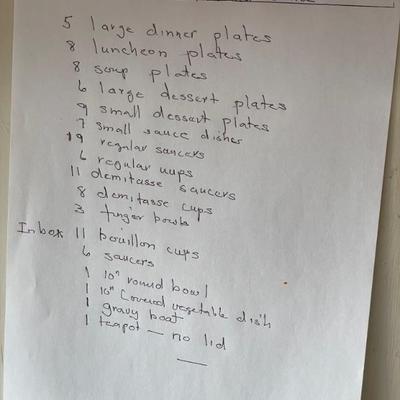 5 large dinner plates
8 luncheon plates
8 soup plates
6 large dessert plates
9 small dessert plates
7 small sauce dishes
19 regular saucers
6 regular cups
11 demitasse saucers
8 demitasse cups
3 finger bowls
In box 11 bouillon cups
6 saucers
1 10" round bowl
1 10" Covered vegetable dish
1 gravy boat
1 teapot — no lid